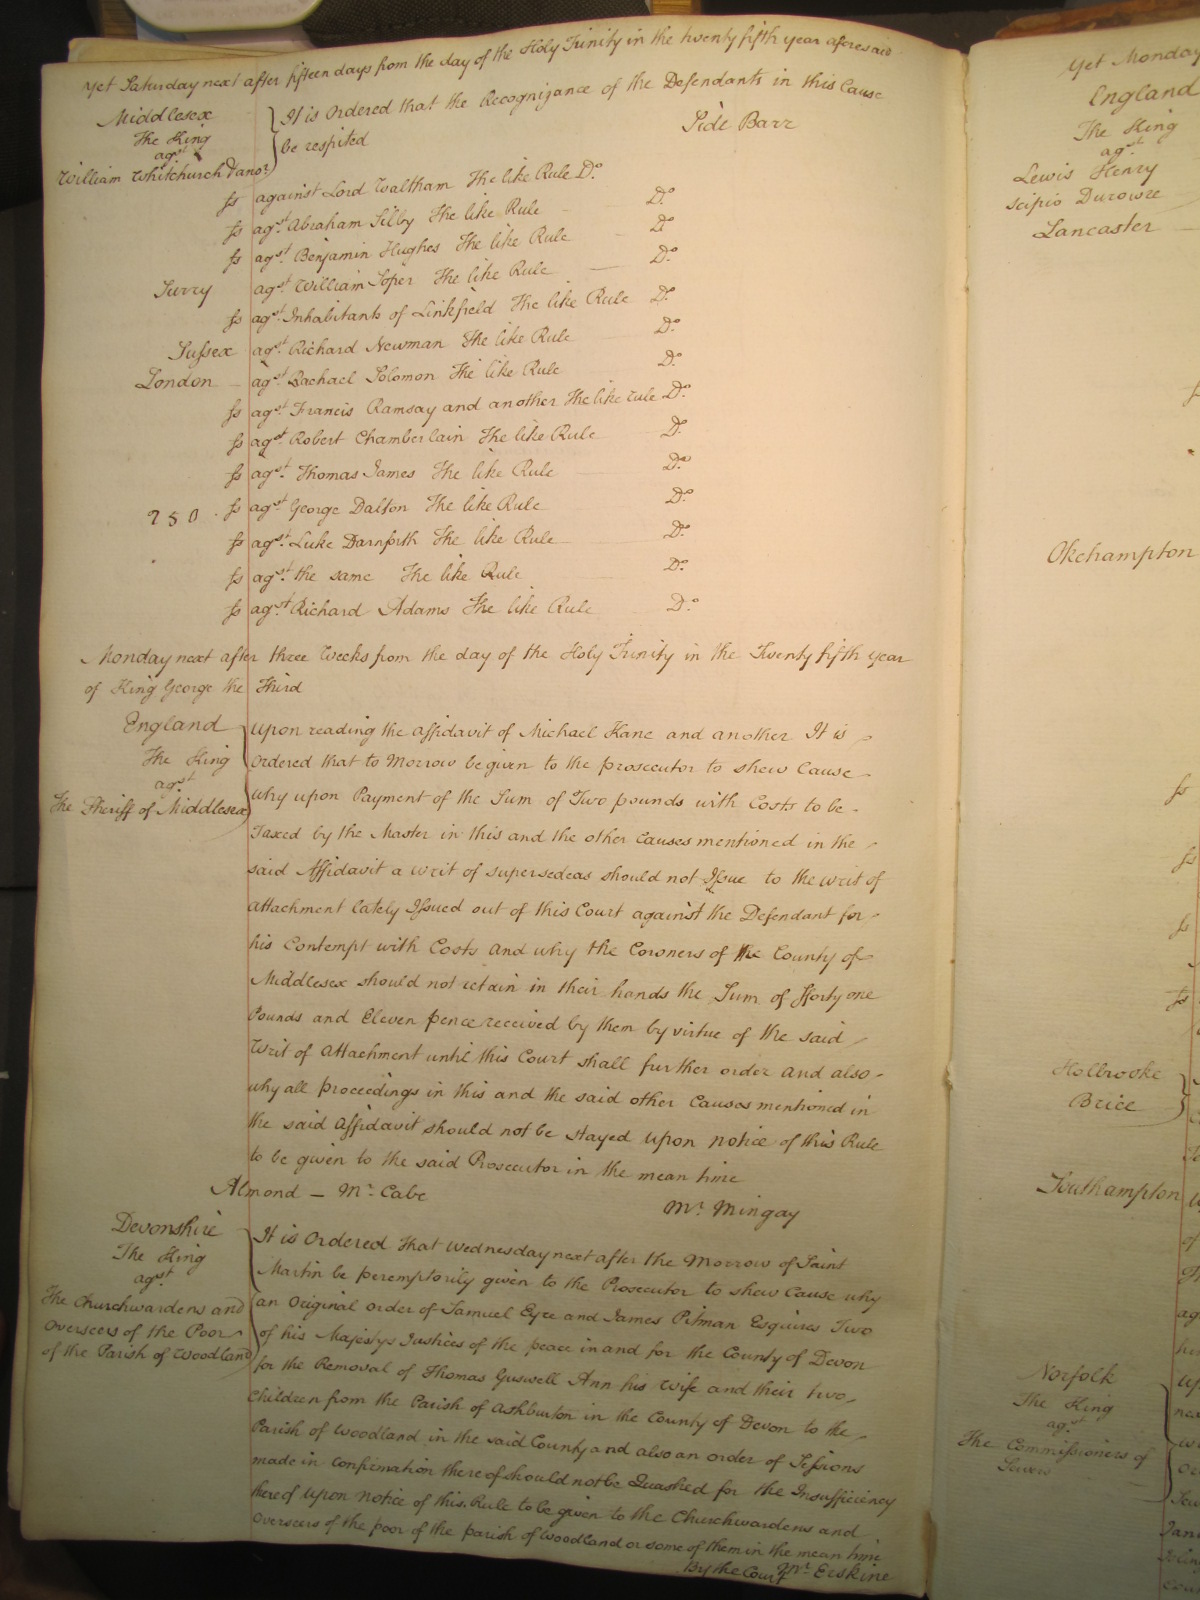 Yet Saturday next after fifteen days from the day of the Holy Trinity in the twenty fifth year aforesaid
Middlesex
The King
agst
William Whitchurch & anor
It is Ordered that the Recognizance of the Defendants in this Cause
be respited
Side Barr
ss against Lord Waltham The like Rule Do
ss agst Abraham Silby The like Rule Do
ss agst Benjamin Hughes The like Rule Do
Surry agst William Soper The like Rule Do
ss agst Inhabitants of Linkfield The like Rule Do
Sussex agst Richard Newman The like Rule Do
London agst Rachael Solomon The like Rule Do
ss agst Francis Ramsay and another The like rule Do
ss agst Robert Chamberlain The like Rule Do
ss agst Thomas James The like Rule Do
250 ss agst George Dalton The like Rule Do
ss agst Luke Darnforth The like Rule Do
ss agst the same The like Rule Do
ss agst Richard Adams The like Rule Do
Monday next after three Weeks from the day of the Holy Trinity in the Twenty fifth year
of King George the Third
England
The King
agst
The Sheriff of Middlesex
Upon reading the affidavit of Michael Kane and another It is
Ordered that to Morrow be given to the prosecutor to shew Cause
why upon Payment of the Sum of Two pounds with Costs to be
Taxed by the Master in this and the other Causes mentioned in the
said Affidavit a writ of supersedeas should not Issue to the writ of
attachment lately Issued out of this Court against the Defendant for
his Contempt with Costs and why the Coroners of the County of
Middlesex should not retain in their hands the Sum of Fforty one
Pounds and Eleven pence received by them by virtue of the said
Writ of Attachment until this Court shall further order and also
why all proceedings in this and the said other Causes mentioned in
the said Affidavit should not be stayed upon notice of this Rule
to be given to the said Prosecutor in the mean time
Almond – Mr Cabe
Mr Mingay
Devonshire
The King
agst
The Churchwardens and
Overseers of the Poor
of the Parish of Woodland
It is Ordered that Wednesday next after the Morrow of Saint
Martin be peremptorily given to the Prosecutor to shew Cause why
an Original Order of Samuel Eyre and James Pitman Esquires Two
of his Majestys Justices of the peace in and for the County of Devon
for the Removal of Thomas Guswell Ann his Wife and their two
Children from the Parish of Ashburton in the County of Devon to the
Parish of Woodland in the said County and also an order of Sessions
made in confirmation thereof should not be Quashed for the Insufficiency
thereof upon notice of this Rule to be given to the Churchwardens and
Overseers of the poor of the parish of Woodland or some of them in the mean time
By the Court Mr Erskine
Yet Monday
England
The King
agst
Lewis Henry
Scipio Durowre
Lancaster
Okehampton
ss
ss
ss
ss
Holbrooke
Brice
Southampton
Norfolk
The King
agst
The Commissioners of
Sewers